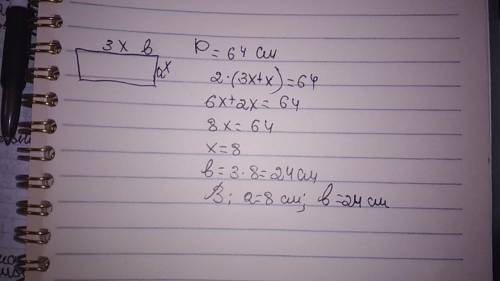 3x в
ax
P = 64 см
2·(3x+x)=64
6x+2x=64
8x=64
x=8
в=3·8=24см
В: a=8 см; в=24 см